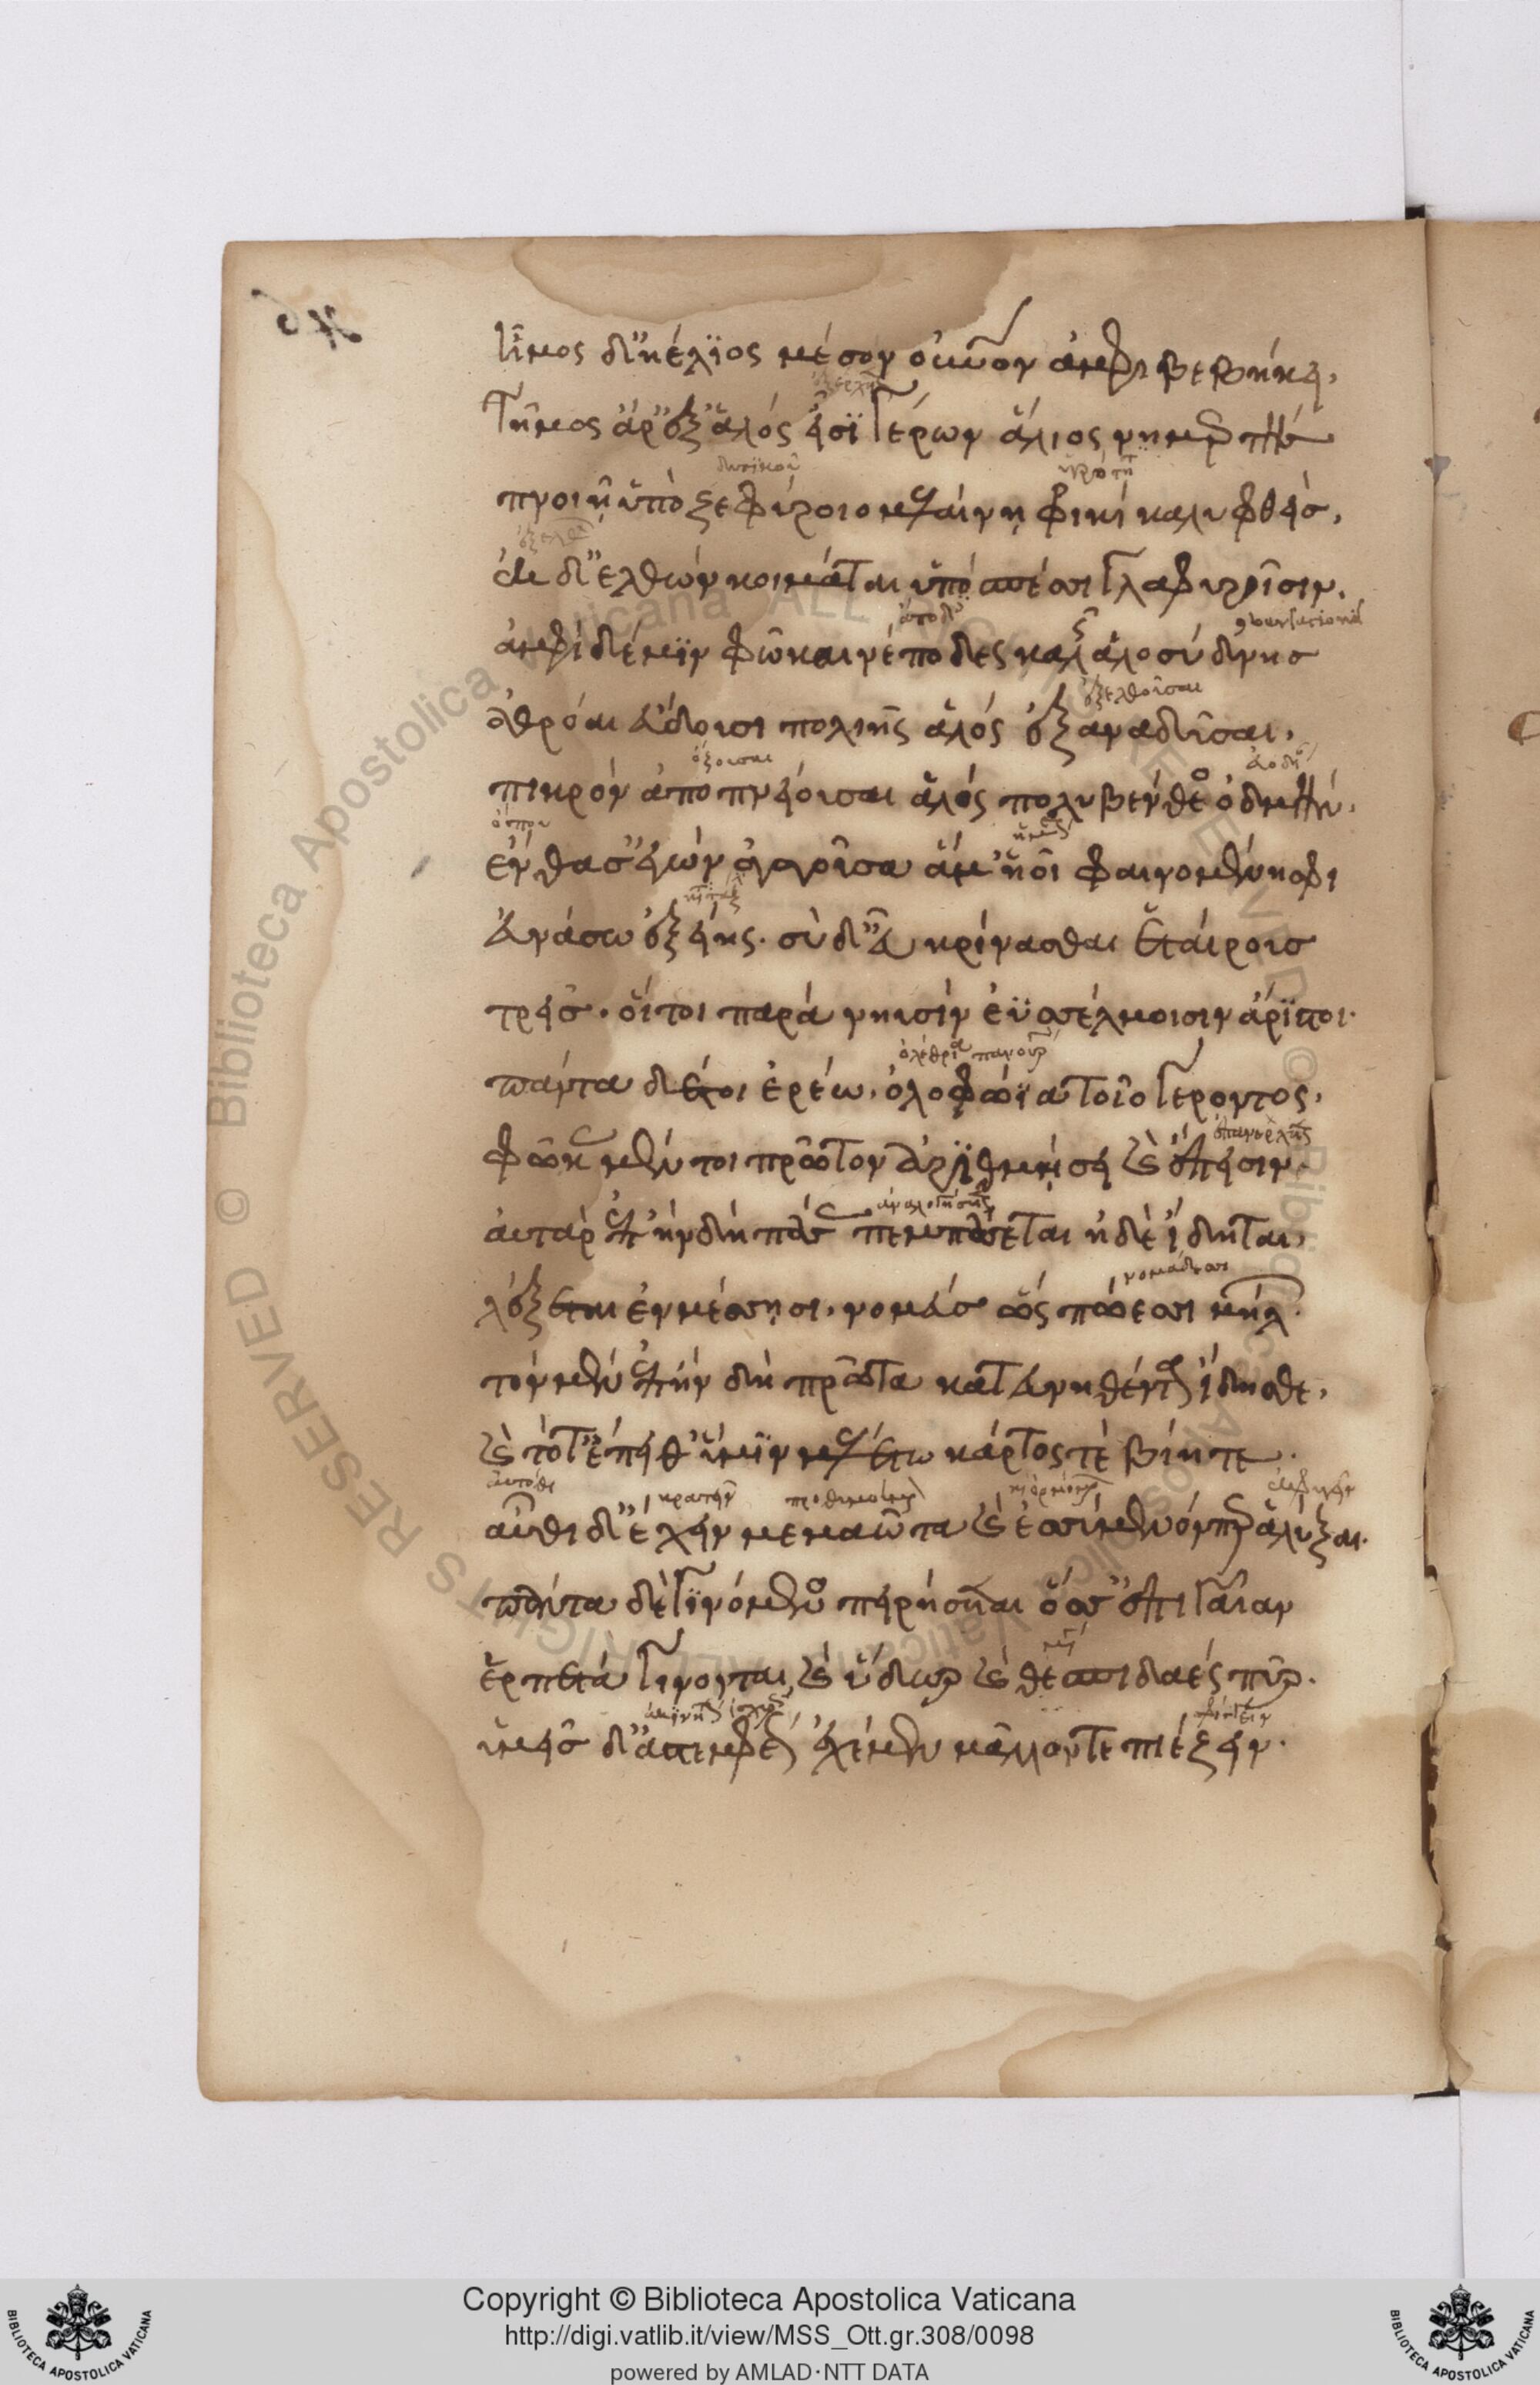 Τῆμος δ' ἠέλϊος μέσον οὐρανὸν ἀμφιβεβήκει,
Τῆμος ἄρ' ἐξ ἁλός εἶσϊ γέρων ἅλιος νημερτής
πνοιῇ ὕπο ζεφύροιο μελαίνῃ φρικί καλυφθείς,
ἐκ δ' ἐλθών κοιμᾶται ὑπό σπέσσι γλαφυροῖσιν.
ἀμφί δέ μϊν φῶκαι νέποδες καλῆς ἁλοσύδνης
ἀθρόαι εὕδουσι πολιῆς ἁλός ἐξαναδῦσαι,
πικρόν ἀποπνείουσαι ἁλός πολυβενθέος ὀδμήν.
ἔνθα σ' ἐγών ἀγαγοῦσα ἅμ' ἠοῖ φαινομένηφι
εὐνάσω ἑξείης. σὺ δ' εὖ κρίνασθαι ἑταίρους
τρεῖς. οἵ τοι παρά νηυσίν ἐϋσσέλμοισιν ἄρϊστοι.
πάντα δέ τοι ἐρέω. ὀλοφώϊα τοῖο γέροντος.
φώκας μέν τοι πρῶτον ἀριθμήσει καὶ ἔπεισιν.
αὐτάρ ἐπήν δή πάσας πεμπάσσεται ἠδὲ ἴδηται,
λέξεται ἐν μέσσῃσι. νομεύς ὥς πώεσι μήλων.
τόν μέν ἐπήν δή πρῶτα κατευνηθέντα ἴδησθε,
καὶ τότ' ἔπειθ' ὑμῖν μελέτω κάρτος τὲ βίη τε.
αὐτόθι κρατεῖν
αὖθι δ' ἔχειν μεμαῶτα καὶ ἐσσύμενόν περ ἀλύξαι.
πάντα δὲ γϊνόμενος πειρήσεται ὅσσ' ἐπί γαῖαν
ἑρπετά γίνονται καὶ ὕδωρ καὶ θεσπιδαές πῦρ.
ὑμεῖς δ' ἀστεμφέως ἐχέμεν μᾶλλόν τε πιέζειν.
Copyright © Biblioteca Apostolica Vaticana
http://digi.vatlib.it/view/MSS_Ott.gr.308/0098
powered by AMLAD·NTT DATA